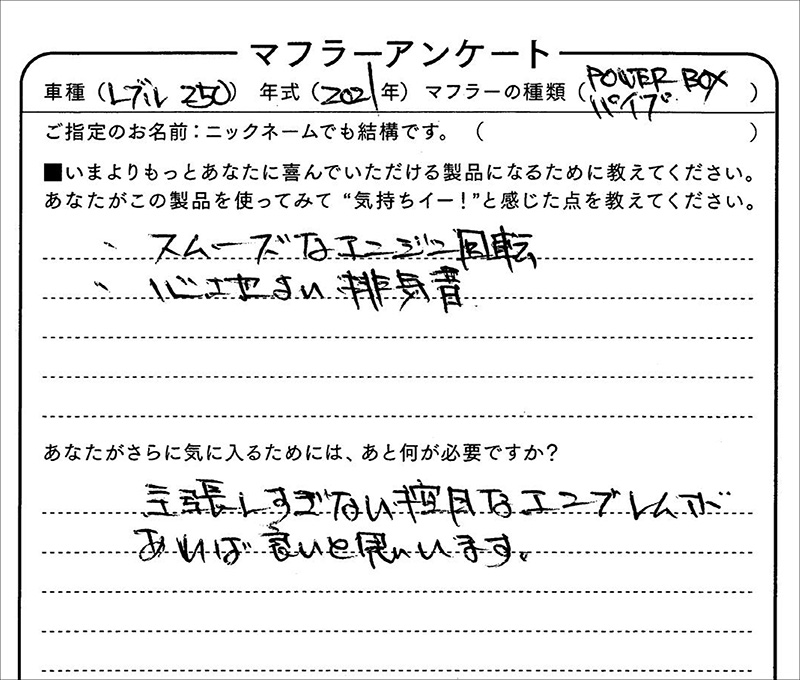 マフラーアンケート
車種（レブル 250） 年式（2021年） マフラーの種類（POWER BOX パイプ）
ご指定のお名前：ニックネームでも結構です。（ ）
■いまよりもっとあなたに喜んでいただける製品になるために教えてください。
あなたがこの製品を使ってみて “気持ちイー！”と感じた点を教えてください。
、スムーズなエンジン回転
、心地よい排気音
あなたがさらに気に入るためには、あと何が必要ですか？
主張しすぎない控目なエンブレムが
あれば良いと思います。